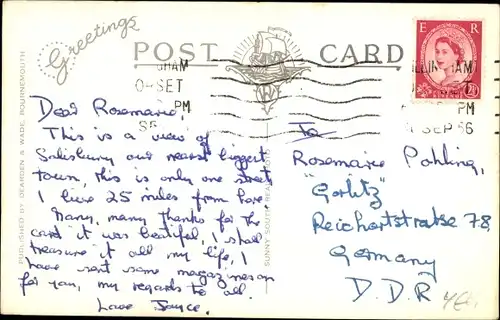 Greetings
POST CARD
E R
GHAM
0-SET
PM
ILLINGHAM
PM
SEP 56
PUBLISHED BY DEARDEN & WADE, BOURNEMOUTH
SUNNY SOUTH
Dear Rosemarie
This is a view of
Salisbury our nearest biggest
town, this is only one street
I live 25 miles from here.
Many, many thanks for the
card it was beatiful, I shall
treasure it all my life, I
have sent some magazines on
for you, my regards to all.
Love Joyce.
To
Rosemarie Pohling,
"Gorlitz"
Reichertstratse 78,
Germany
D.D.R